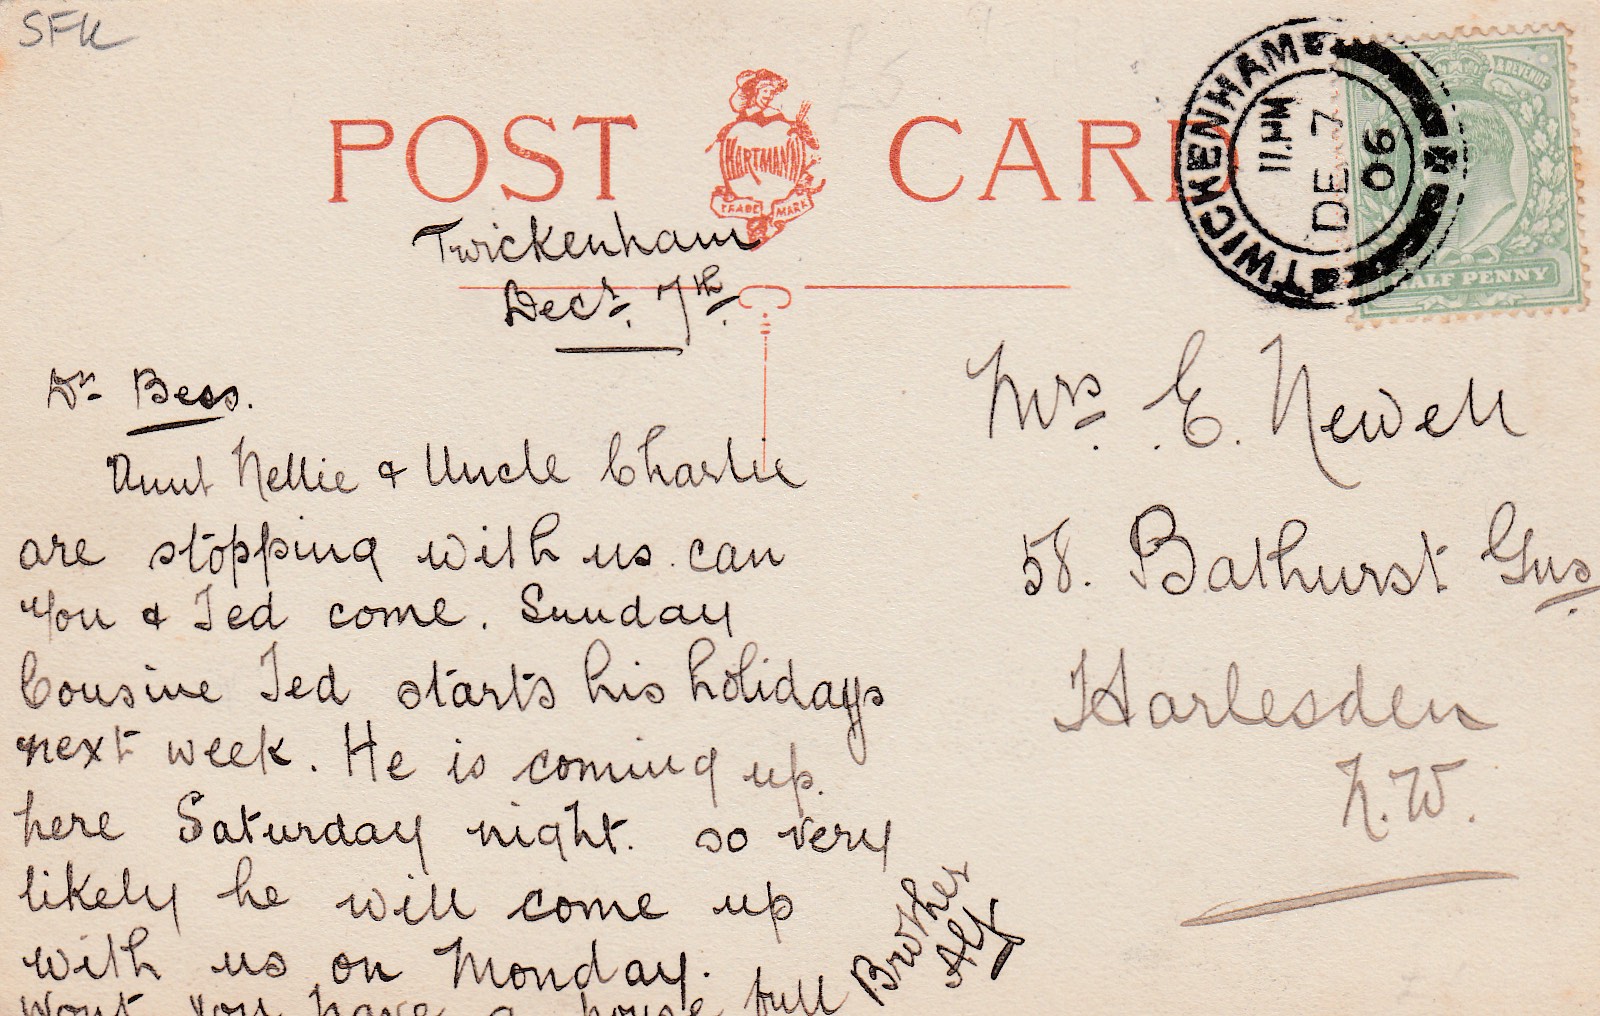 SFK
POST CARD
HARTMANN
TRADE MARK
TWICKENHAM
11.PM
DE 7
06
& REVENUE
HALF PENNY
Twickenham
Decr. 7th.
Dr Bess.
Aunt Nellie & Uncle Charlie
are stopping with us. can
you & Ted come. Sunday
Cousine Ted starts his holidays
next week. He is coming up.
here Saturday night. so very
likely he will come up
with us on Monday.
Wont you have a house full
Brother
Alf
Mrs. E. Newell
58. Bathurst Gns
Harlesden
N.W.